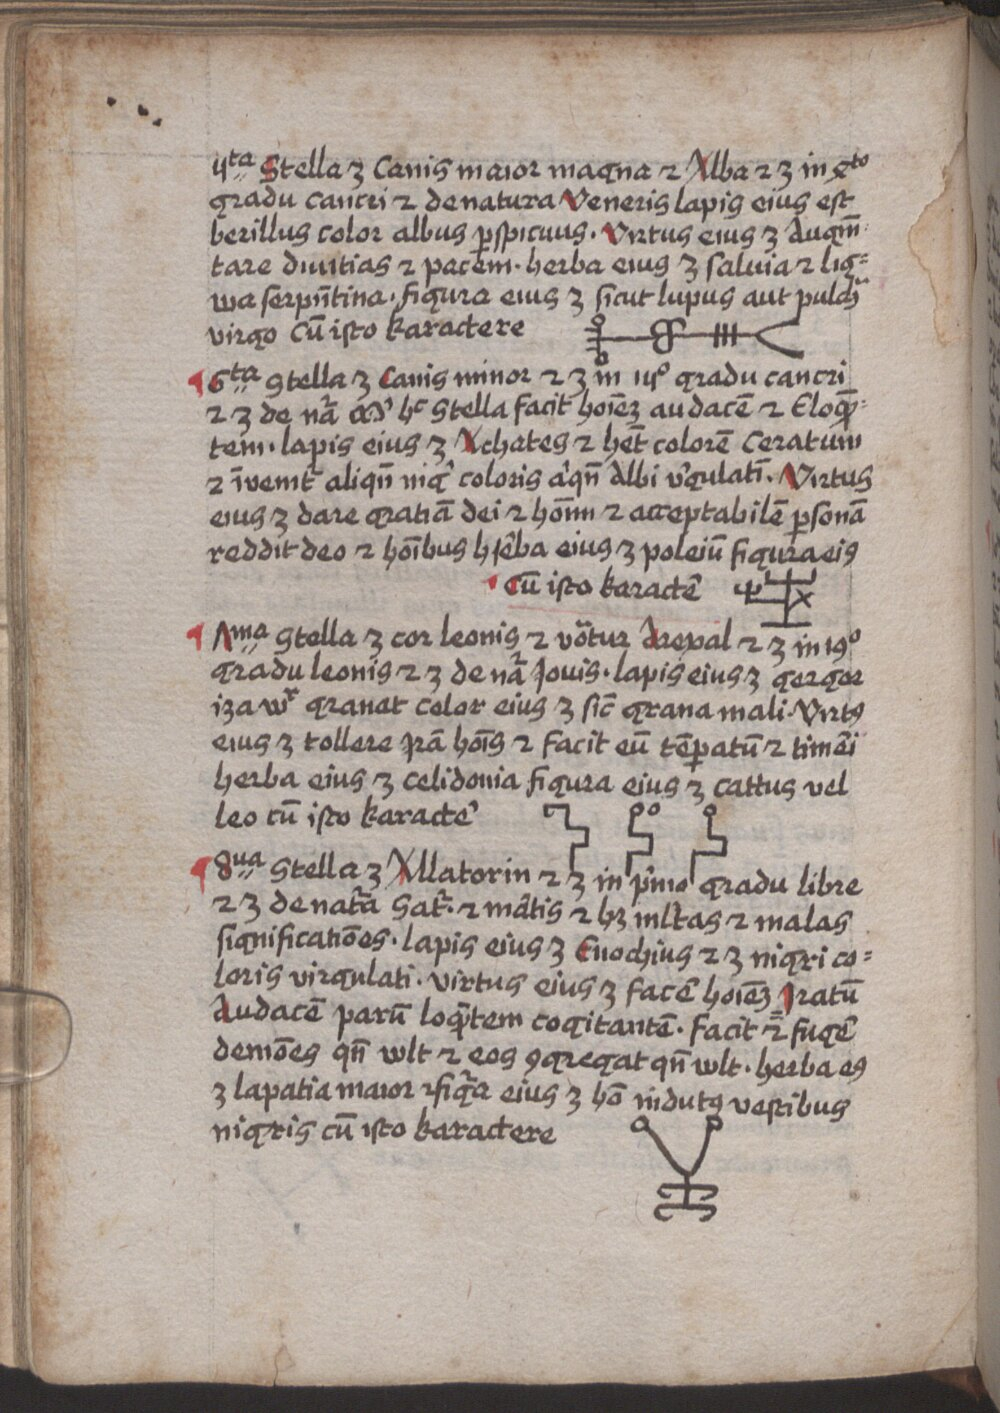 4ta Stella ꝫ Canis maior magna ⁊ Alba ⁊ ꝫ in to
gradu cancri ⁊ de natura Veneris lapis eius est
berillus color albus ꝑspicuus. Virtus eius ꝫ Augm̄
tare diuitias ⁊ pacem. herba eius ꝫ saluia ⁊ lig=
wa serpn̄tina. figura eius ꝫ sicut lupus aut pulch
virgo Cū isto karactere
¶ 6ta Stella ꝫ Canis minor ⁊ ꝫ in gradu cancri
⁊ ꝫ de nā hc Stella facit hoīeꝫ audacē ⁊ Eloqn̄=
tem. lapis eius ꝫ Achates ⁊ het̄ colorē Ceratum
⁊ īvenit aliqn̄ coloris aqn̄ Albi v̓gulati. Virtus
eius ꝫ dare gratiā dei ⁊ hoīm ⁊ acceptabilē ꝑsonā
reddit deo ⁊ hoībus herba eius ꝫ poleiū figura eiꝰ
¶ Cū isto karactē
¶ Λma Stella ꝫ cor leonis ⁊ vo͞tur Arepal ⁊ ꝫ in 19o
gradu leonis ⁊ ꝫ de nā Jouis. lapis eius ꝫ gergor
iza granat color eius ꝫ sic̄ grana mali. Virtꝰ
eius ꝫ tollere Jrā hoīs ⁊ facit eū tēꝑatū ⁊ timēi
herba eius ꝫ celidonia figura eius ꝫ cattus vel
leo cū isto karactē
¶ 8ua Stella ꝫ Allatorin ⁊ ꝫ in pͥmo gradu libre
⁊ ꝫ de natrā Sat. ⁊ mātis ⁊ hꝫ mltas ⁊ malas
significatiōes. lapis eius ꝫ Enochius ⁊ ꝫ nigri co=
loris virgulati. virtus eius ꝫ facē hoīeꝫ Jratū
Audacē parū loqn̄tem cogitantē. facit fugē
demōes qn̄ wlt ⁊ eos ꝯgregat qn̄ wlt. herba eꝰ
ꝫ lapatia maior ⁊ figa eius ꝫ hō indutꝰ vestibus
nigris cū isto karactere